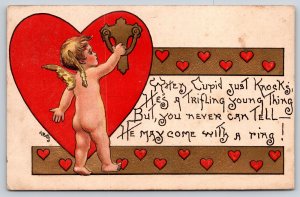 When Cupid just Knocks,
He's a trifling young thing
But, you never can tell—
He may come with a ring!